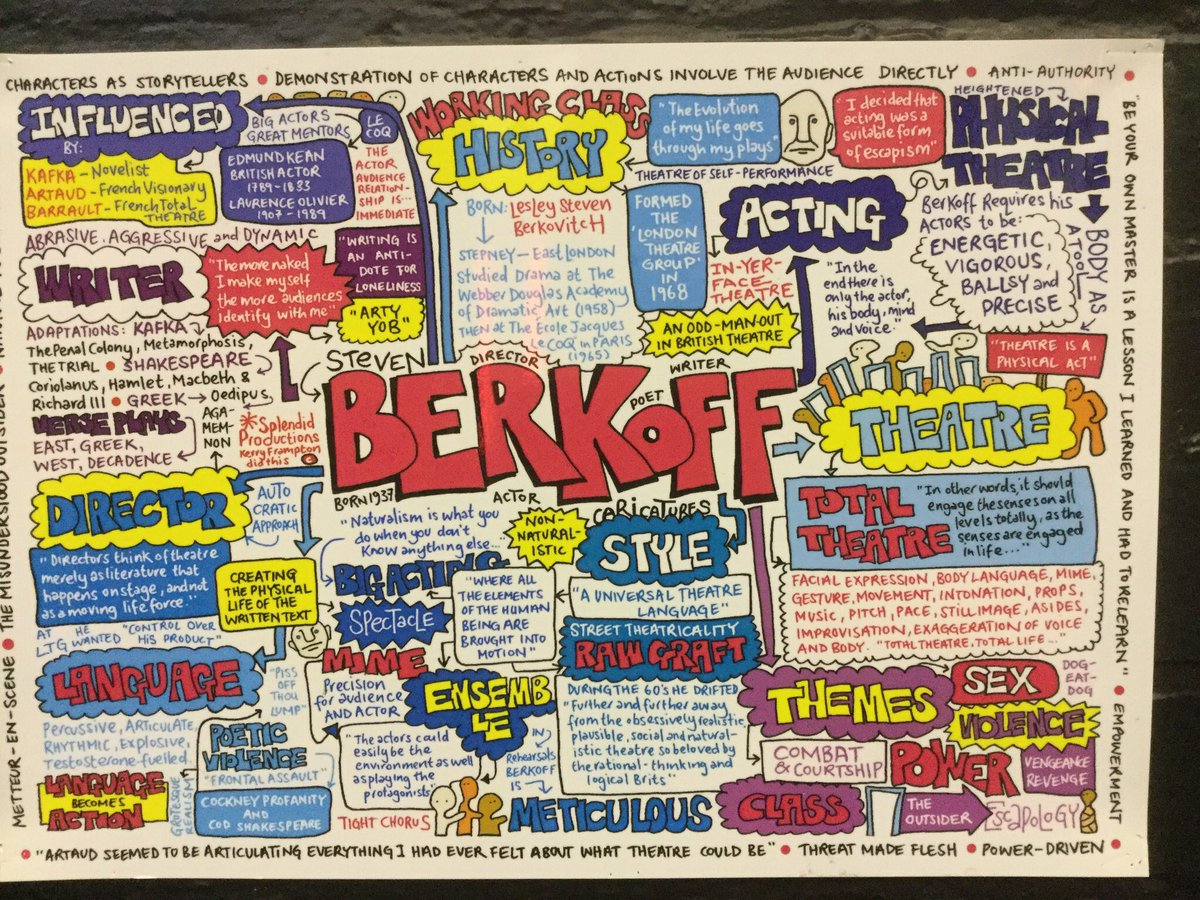 CHARACTERS AS STORYTELLERS • DEMONSTRATION OF CHARACTERS AND ACTIONS INVOLVE THE AUDIENCE DIRECTLY • ANTI-AUTHORITY •
"BE YOUR OWN MASTER IS A LESSON I LEARNED AND HAD TO RELEARN" • EMPOWERMENT
INFLUENCED
BY:
KAFKA - Novelist
ARTAUD - French Visionary
BARRAULT - French Total
THEATRE
BIG ACTORS
GREAT MENTORS
LE
COQ
EDMUND KEAN
BRITISH ACTOR
1789-1833
LAURENCE OLIVIER
1907-1989
THE
ACTOR
AUDIENCE
RELATION-
SHIP IS...
IMMEDIATE
WORKING CLASS
HISTORY
"The Evolution
of my life goes
through my plays"
"I decided that
acting was a
suitable form
of escapism"
THEATRE OF SELF-PERFORMANCE
BORN: Lesley Steven
Berkovitch
STEPNEY - East LONDON
Studied Drama at The
Webber Douglas Academy
of Dramatic Art (1958)
THEN at The Ecole Jacques
Le COQ in PARIS
(1965)
FORMED
THE
'LONDON
THEATRE
GROUP' IN
1968
HEIGHTENED
PHYSICAL
THEATRE
BODY AS
A TOOL
ACTING
Berkoff Requires his
ACTORS to be:
ENERGETIC,
VIGOROUS,
BALLSY and
PRECISE
IN-YER-
FACE
THEATRE
"In the
end there is
only the actor,
his body, mind
and voice."
AN ODD-MAN-OUT
IN BRITISH THEATRE
"THEATRE IS A
PHYSICAL ACT"
ABRASIVE, AGGRESSIVE and DYNAMIC
WRITER
"The more naked
I make myself
the more audiences
identify with me"
"WRITING IS
AN ANTI-
DOTE FOR
LONELINESS
"ARTY
YOB"
ADAPTATIONS: KAFKA
The Penal Colony, Metamorphosis,
THE TRIAL • SHAKESPEARE
Coriolanus, Hamlet, Macbeth &
Richard III • GREEK → Oedipus,
AGA-
MEM-
NON
VERSE PLAYS
EAST, GREEK,
WEST, DECADENCE
*Splendid
Productions
Kerry Frampton
did this
STEVEN
DIRECTOR
WRITER
BERKOFF
POET
BORN 1937
ACTOR
THEATRE
TOTAL
THEATRE
"In other words, it should
engage the senses on all
levels totally, as the
senses are engaged
in life..."
FACIAL EXPRESSION, BODY LANGUAGE, MIME,
GESTURE, MOVEMENT, INTONATION, PROPS,
MUSIC, PITCH, PACE, STILL IMAGE, ASIDES,
IMPROVISATION, EXAGGERATION OF VOICE
AND BODY. "TOTAL THEATRE. TOTAL LIFE..."
DIRECTOR
AUTO
CRATIC
APPROACH
"Directors think of theatre
merely as literature that
happens on stage, and not
as a moving life force."
CREATING
THE PHYSICAL
LIFE OF THE
WRITTEN TEXT
AT HE "CONTROL OVER
LTG WANTED HIS PRODUCT"
"Naturalism is what you
do when you don't
Know anything else..."
NON-
NATURAL-
ISTIC
BIG ACTING
SPECTACLE
"WHERE ALL
THE ELEMENTS
OF THE HUMAN
BEING ARE
BROUGHT INTO
MOTION"
CARICATURES
STYLE
"A UNIVERSAL THEATRE
LANGUAGE"
STREET THEATRICALITY
RAW CRAFT
DURING THE 60's HE DRIFTED
"Further and further away
from the obsessively realistic,
plausible, social and natural-
istic theatre so beloved by
the rational-thinking and
logical Brits"
LANGUAGE
"PISS
OFF
THOU
LUMP"
Percussive, ARTICULATE,
RHYTHMIC, Explosive,
Testosterone-fuelled.
LANGUAGE
BECOMES
ACTION
POETIC
VIOLENCE
"FRONTAL ASSAULT"
GROTESQUE
REALISM
COCKNEY PROFANITY
AND
COD SHAKESPEARE
MIME
Precision
for audience
AND ACTOR
ENSEMB
LE
"The actors could
easily be the
environment as well
as playing the
protagonists"
TIGHT CHORUS
IN
Rehearsals
BERKOFF
IS
METICULOUS
THEMES
SEX
DOG-
EAT-
DOG
VIOLENCE
COMBAT
& COURTSHIP
POWER
VENGEANCE
REVENGE
CLASS
THE
OUTSIDER
EScapoloGY
METTEUR-EN-SCENE • THE MISUNDERSTOOD OUTSIDER •
• "ARTAUD SEEMED TO BE ARTICULATING EVERYTHING I HAD EVER FELT ABOUT WHAT THEATRE COULD BE" • THREAT MADE FLESH • POWER-DRIVEN •